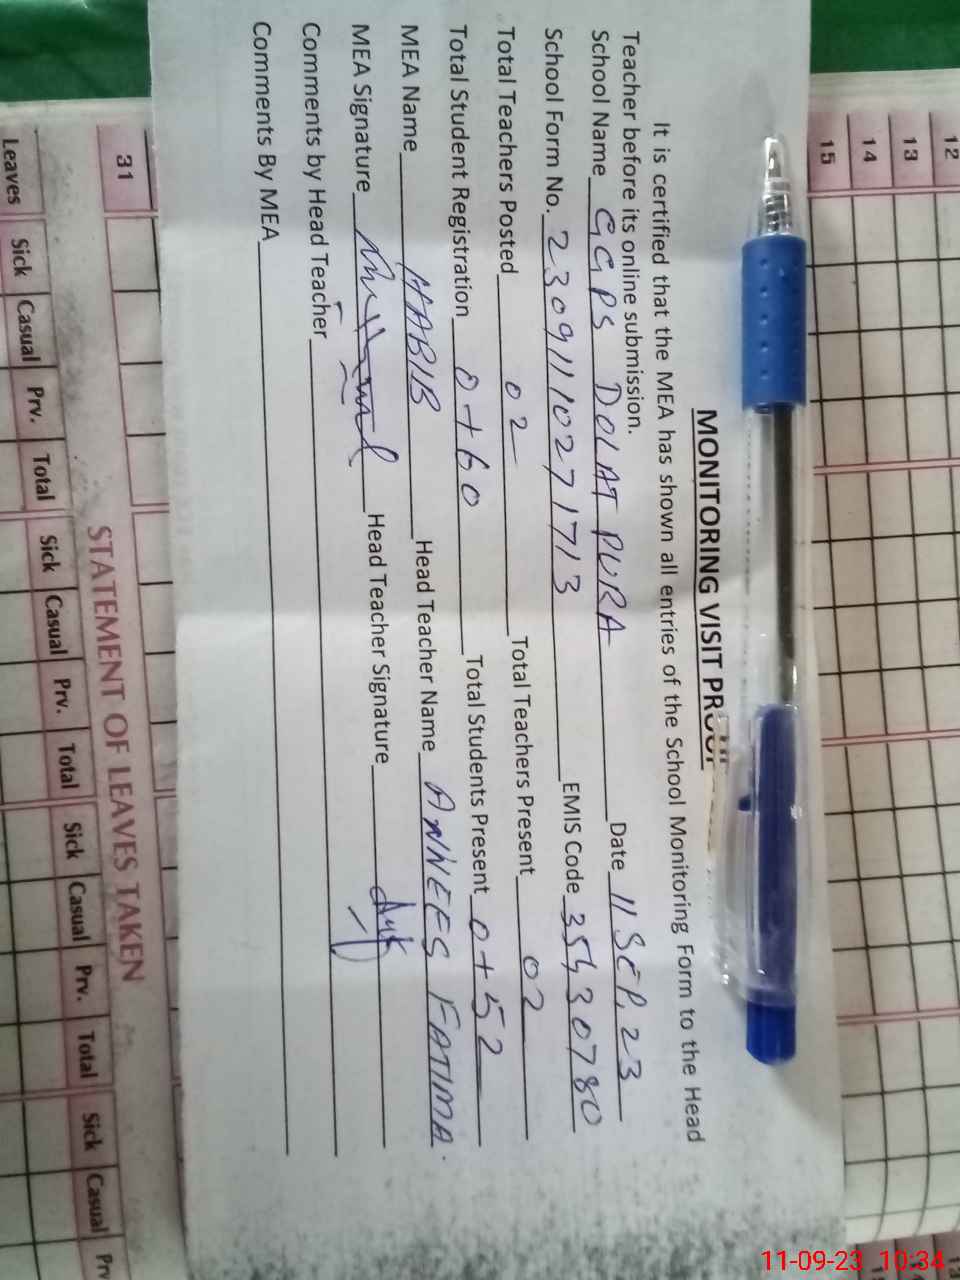 MONITORING VISIT PROOF
It is certified that the MEA has shown all entries of the School Monitoring Form to the Head
Teacher before its online submission.
School Name GGPS DOLAT PURA Date 11 SEP, 23
School Form No. 23091110271713 EMIS Code 35430780
Total Teachers Posted 02 Total Teachers Present 02
Total Student Registration 0+60 Total Students Present 0+52
MEA Name HABIB Head Teacher Name ANNEES FATIMA.
MEA Signature Head Teacher Signature
Comments by Head Teacher
Comments By MEA
12
13
14
15
31
STATEMENT OF LEAVES TAKEN
Leaves Sick Casual Prv. Total Sick Casual Prv. Total Sick Casual Prv. Total Sick Casual Prv
11-09-23 10:34